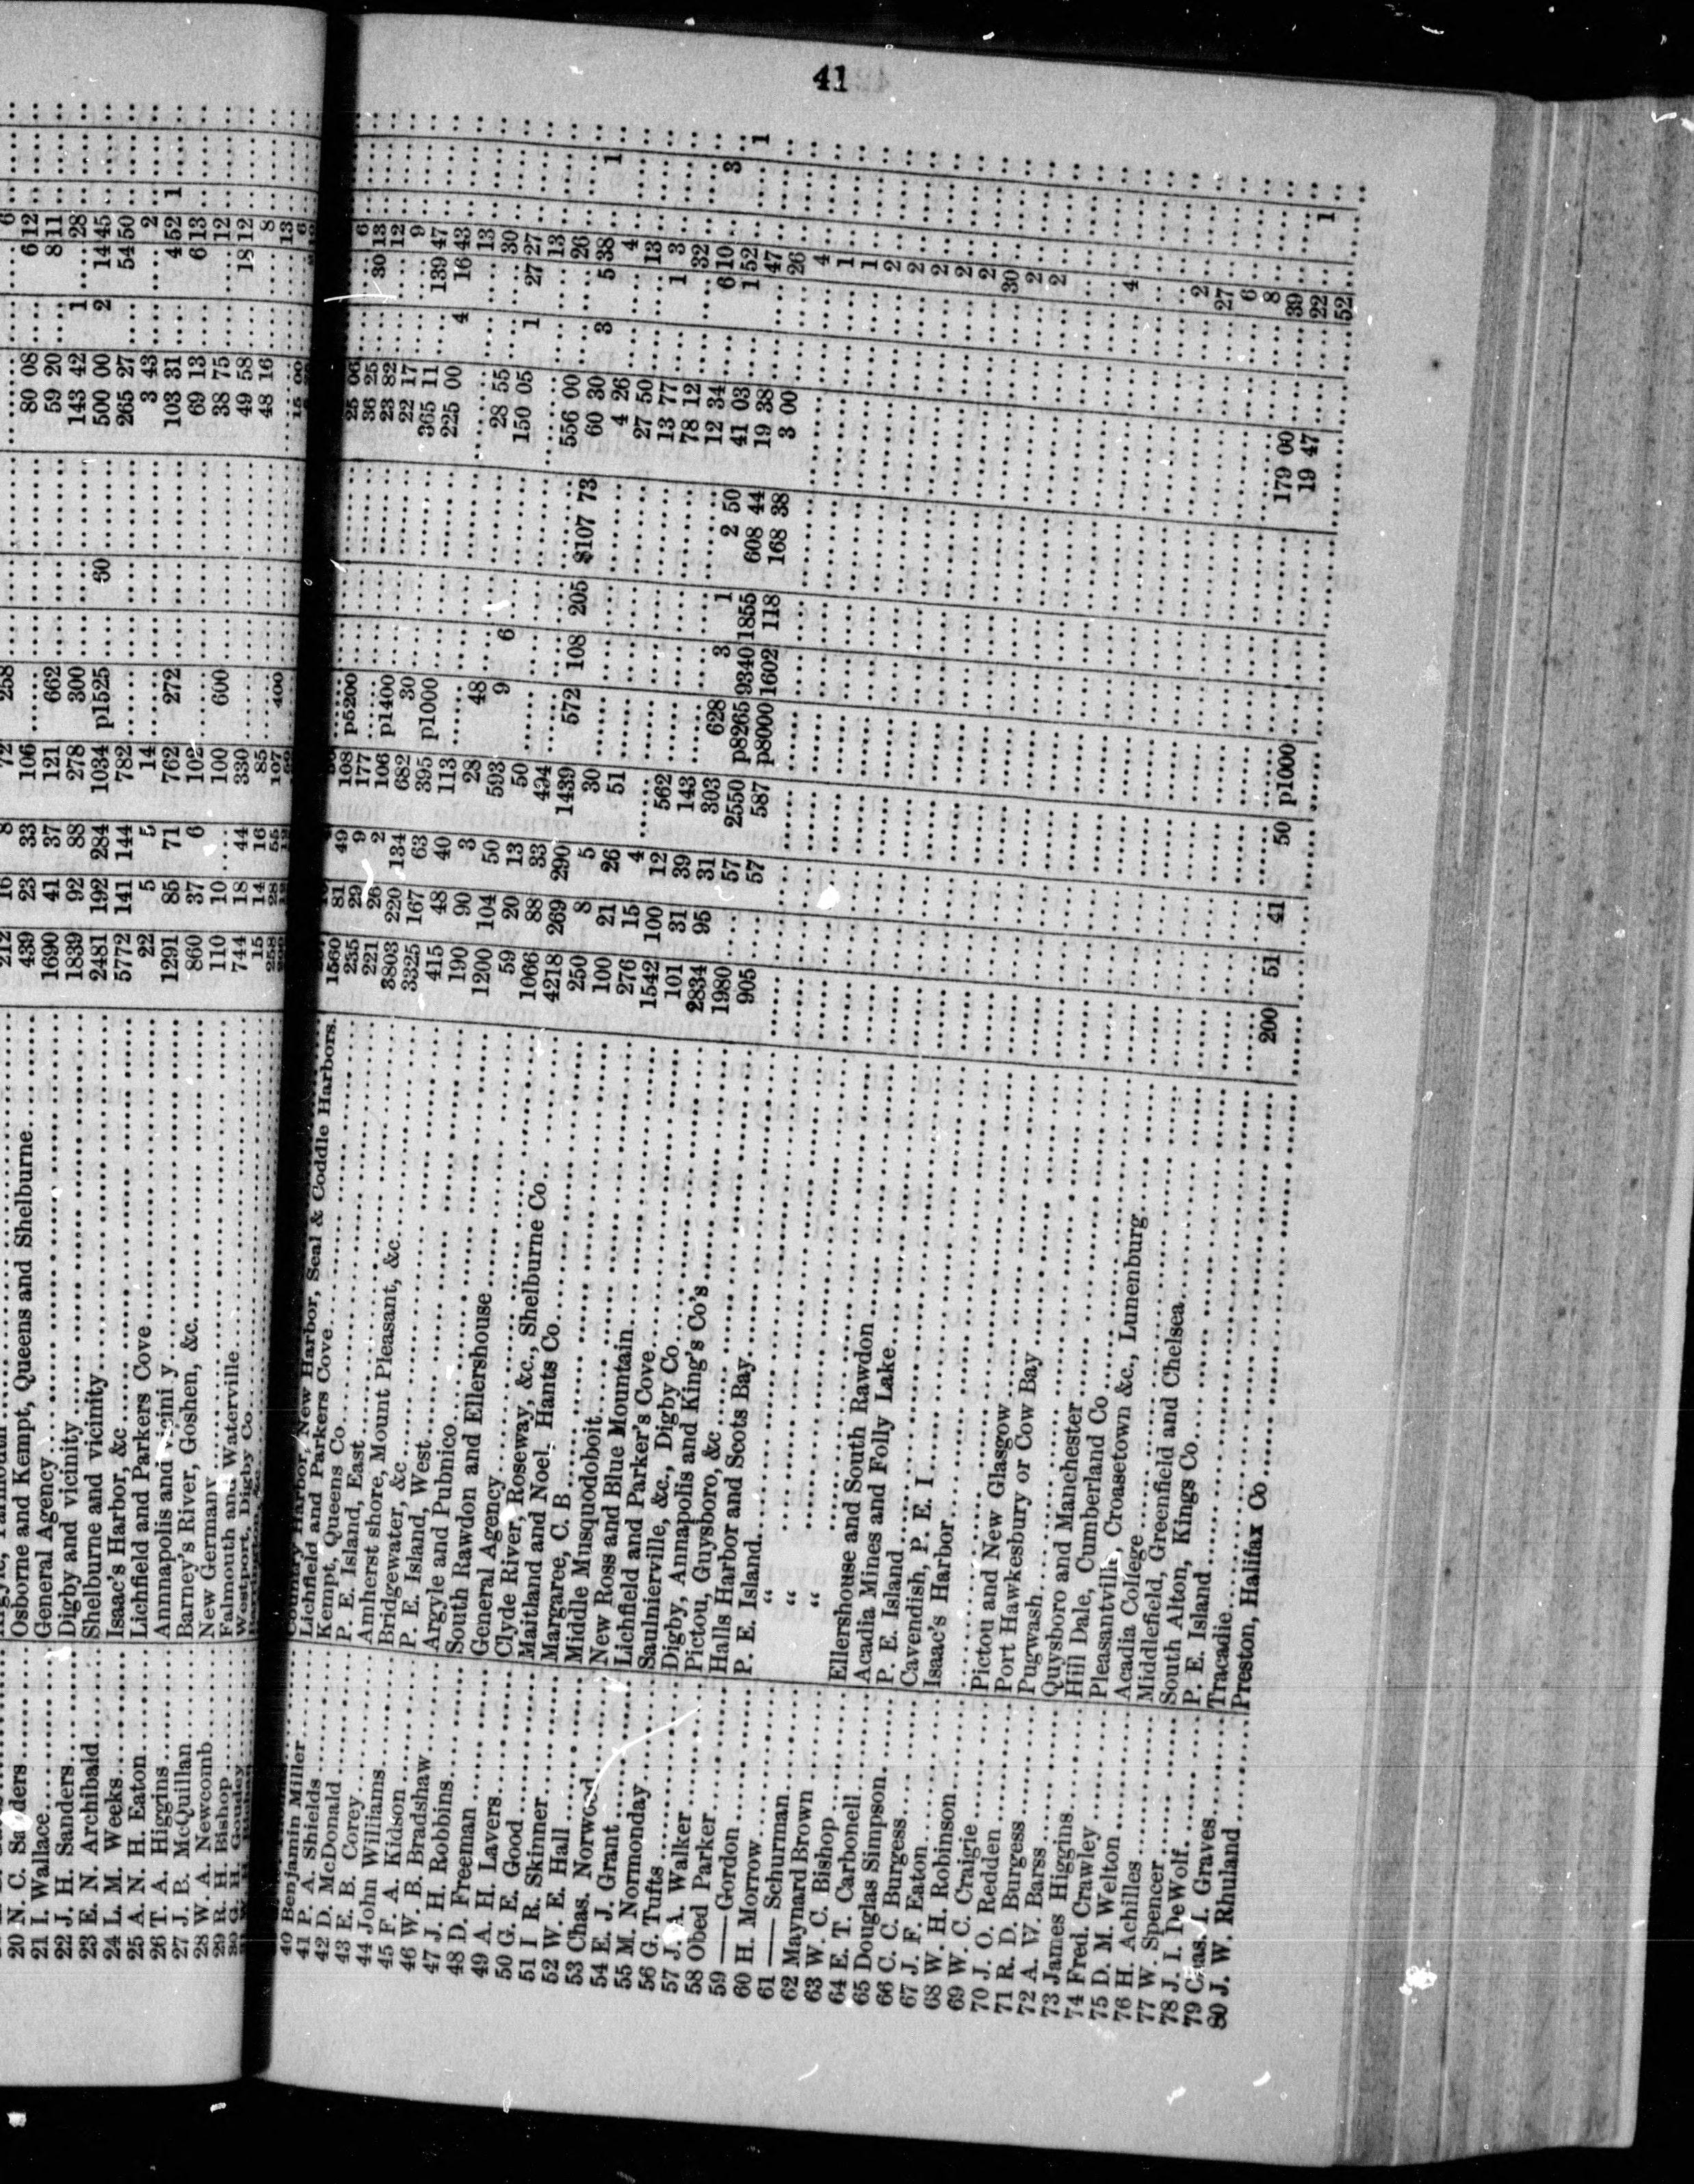 41
20 N. C. Saunders
21 I. Wallace
22 J. H. Sanders
23 E. N. Archibald
24 L. M. Weeks
25 A. N. H. Eaton
26 T. A. Higgins
27 J. B. McQuillan
28 W. A. Newcomb
29 R. H. Bishop
30 G. H. Goudey
40 Benjamin Miller
41 P. A. Shields
42 D. McDonald
43 E. B. Corey
44 John Williams
45 F. A. Kidson
46 W. B. Bradshaw
47 J. H. Robbins
48 D. Freeman
49 A. H. Lavers
50 G. E. Good
51 I R. Skinner
52 W. E. Hall
53 Chas. Norwood
54 E. J. Grant
55 M. Normonday
56 G. Tufts
57 J. A. Walker
58 Obed Parker
59 —— Gordon
60 H. Morrow
61 —— Schurman
62 Maynard Brown
63 W. C. Bishop
64 E. T. Carbonell
65 Douglas Simpson
66 C. C. Burgess
67 J. F. Eaton
68 W. H. Robinson
69 W. C. Craigie
70 J. O. Redden
71 R. D. Burgess
72 A. W. Barss
73 James Higgins
74 Fred. Crawley
75 D. M. Welton
76 H. Achilles
77 W. Spencer
78 J. I. DeWolf
79 Chas. I. Graves
80 J. W. Rhuland
Osborne and Kempt, Queens and Shelburne
General Agency
Digby and vicinity
Shelburne and vicinity
Isaac's Harbor, &c
Lichfield and Parkers Cove
Annapolis and vicini y
Barney's River, Goshen, &c.
New Germany
Falmouth and Waterville
Westport, Digby Co
Country Harbor, New Harbor, Seal & Coddle Harbors.
Lichfield and Parkers Cove
Kempt, Queens Co
P. E. Island, East
Amherst shore, Mount Pleasant, &c
Bridgewater, &c
P. E. Island, West
Argyle and Pubnico
South Rawdon and Ellershouse
General Agency
Clyde River, Roseway, &c., Shelburne Co
Maitland and Noel, Hants Co
Margaree, C. B
Middle Musquodoboit
New Ross and Blue Mountain
Lichfield and Parker's Cove
Saulnierville, &c., Digby Co
Digby, Annapolis and King's Co's
Pictou, Guysboro, &c
Halls Harbor and Scots Bay
P. E. Island
“
“
“
Ellershouse and South Rawdon
Acadia Mines and Folly Lake
P. E. Island
Cavendish, P. E. I
Isaac's Harbor
Pictou and New Glasgow
Port Hawkesbury or Cow Bay
Pugwash
Quysboro and Manchester
Hill Dale, Cumberland Co
Pleasantville, Croasetown &c., Lunenburg
Acadia College
Middlefield, Greenfield and Chelsea
South Alton, Kings Co
P. E. Island
Tracadie
Preston, Halifax Co
212 439 1690 1839 2481 5772 22 1291 860 110 744 15 258
1560 235 221 3803 3325 415 190 1200 59 1066 4218 250 100 276 1542 101 2834 1980 905 200
16 23 41 92 192 141 5 85 37 10 18 14 28
81 29 26 220 167 48 90 104 20 88 269 8 21 15 100 31 95 51
8 33 37 88 284 144 5 71 6 44 16 55
49 9 2 134 63 40 3 50 13 33 290 5 26 4 12 39 31 57 57 41
72 106 121 278 1034 782 14 762 102 100 330 85 107
108 177 106 682 395 113 28 593 50 494 1439 30 51 562 143 303 2550 587 50
258 662 300 p1525 272 600 400
p5200 p1400 30 p1000 48 9 572 628 p8265 p8000 p1000
6 108 3 9340 1602
60
205 1 1855 118
$107 73
2 50
608 44
168 38
80 08
59 20
143 42
500 00
265 27
3 43
103 31
69 13
38 75
49 58
48 16
15 00
25 06
36 25
23 82
22 17
365 11
225 00
28 55
150 05
556 00
60 30
4 26
27 50
13 77
78 12
12 34
41 03
19 38
3 00
179 00
19 47
1 2
4 1 3
6 8 14 54 4 6 18
30 139 16 27 5 1 6 1
6 12 11 28 45 50 2 52 13 12 12 8 13
6 13 12 9 47 43 13 30 27 13 26 38 4 13 3 32 10 52 47 26 4 1 1 2 2 2 2 2 30 2 2 4 2 27 6 8 39 22 52
1
1 3 1
1